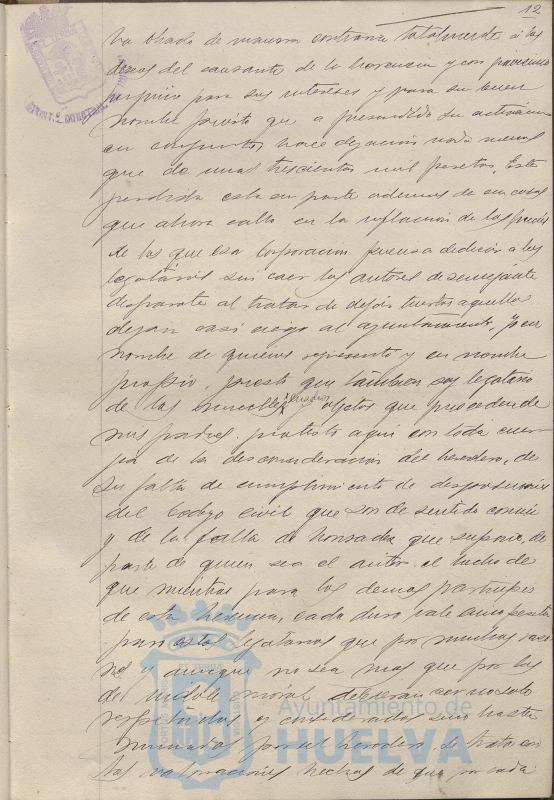 12
ha obrado de manera contraria totalmente á los
deseos del causante de la herencia y con
perjuicio para sus intereses y para su buen
nombre puesto que a
en conjunto hace dejacion nada menos
que de unas trescientas mil pesetas. Este
esta en parte ademas de en cosas
que ahora callo en la inflacion de los precios
de los que esa Corporacion piensa dedicar a los
legatarios sin caer los autores de semejante
disparate al tratar de dejar tuertos aquellos
dejan casi ciego al ayuntamiento, Yo en
nombre de quienes represento y en nombre
propio, puesto que tambien soy legatario
de los muebles, cuadros y objetos que proceden de
mis padres protesto aqui con toda ener
gia de la desconsideracion del heredero, de
su falta de cumplimiento de disposiciones
del Codigo civil que son de sentido comun
y de la falta de honradez que supone, de
parte de quien sea el autor el hecho de
que mientras para los demas participes
de esta herencia, cada duro vale cinco pesetas
para estos legatarios que por muchas razo
nes y aunque no sea mas que por las
de indole moral debieran ser no solo
respetados y considerados sino hasta
mimados por el heredero, se trata con
las valoraciones hechas de que por cada
Ayuntamiento de
HUELVA